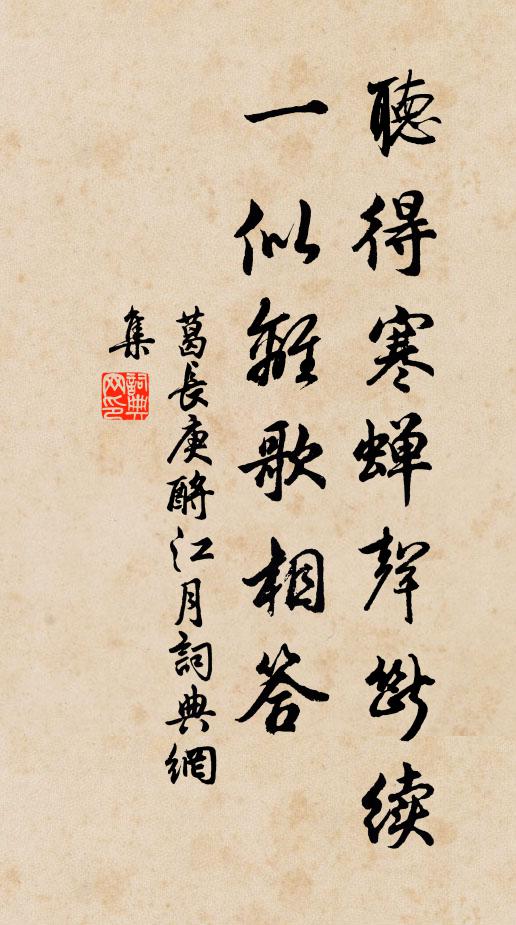 聽得寒蟬聲斷续
一似離歌相答
葛長庚酹江月詞典網
集
詞典
网印